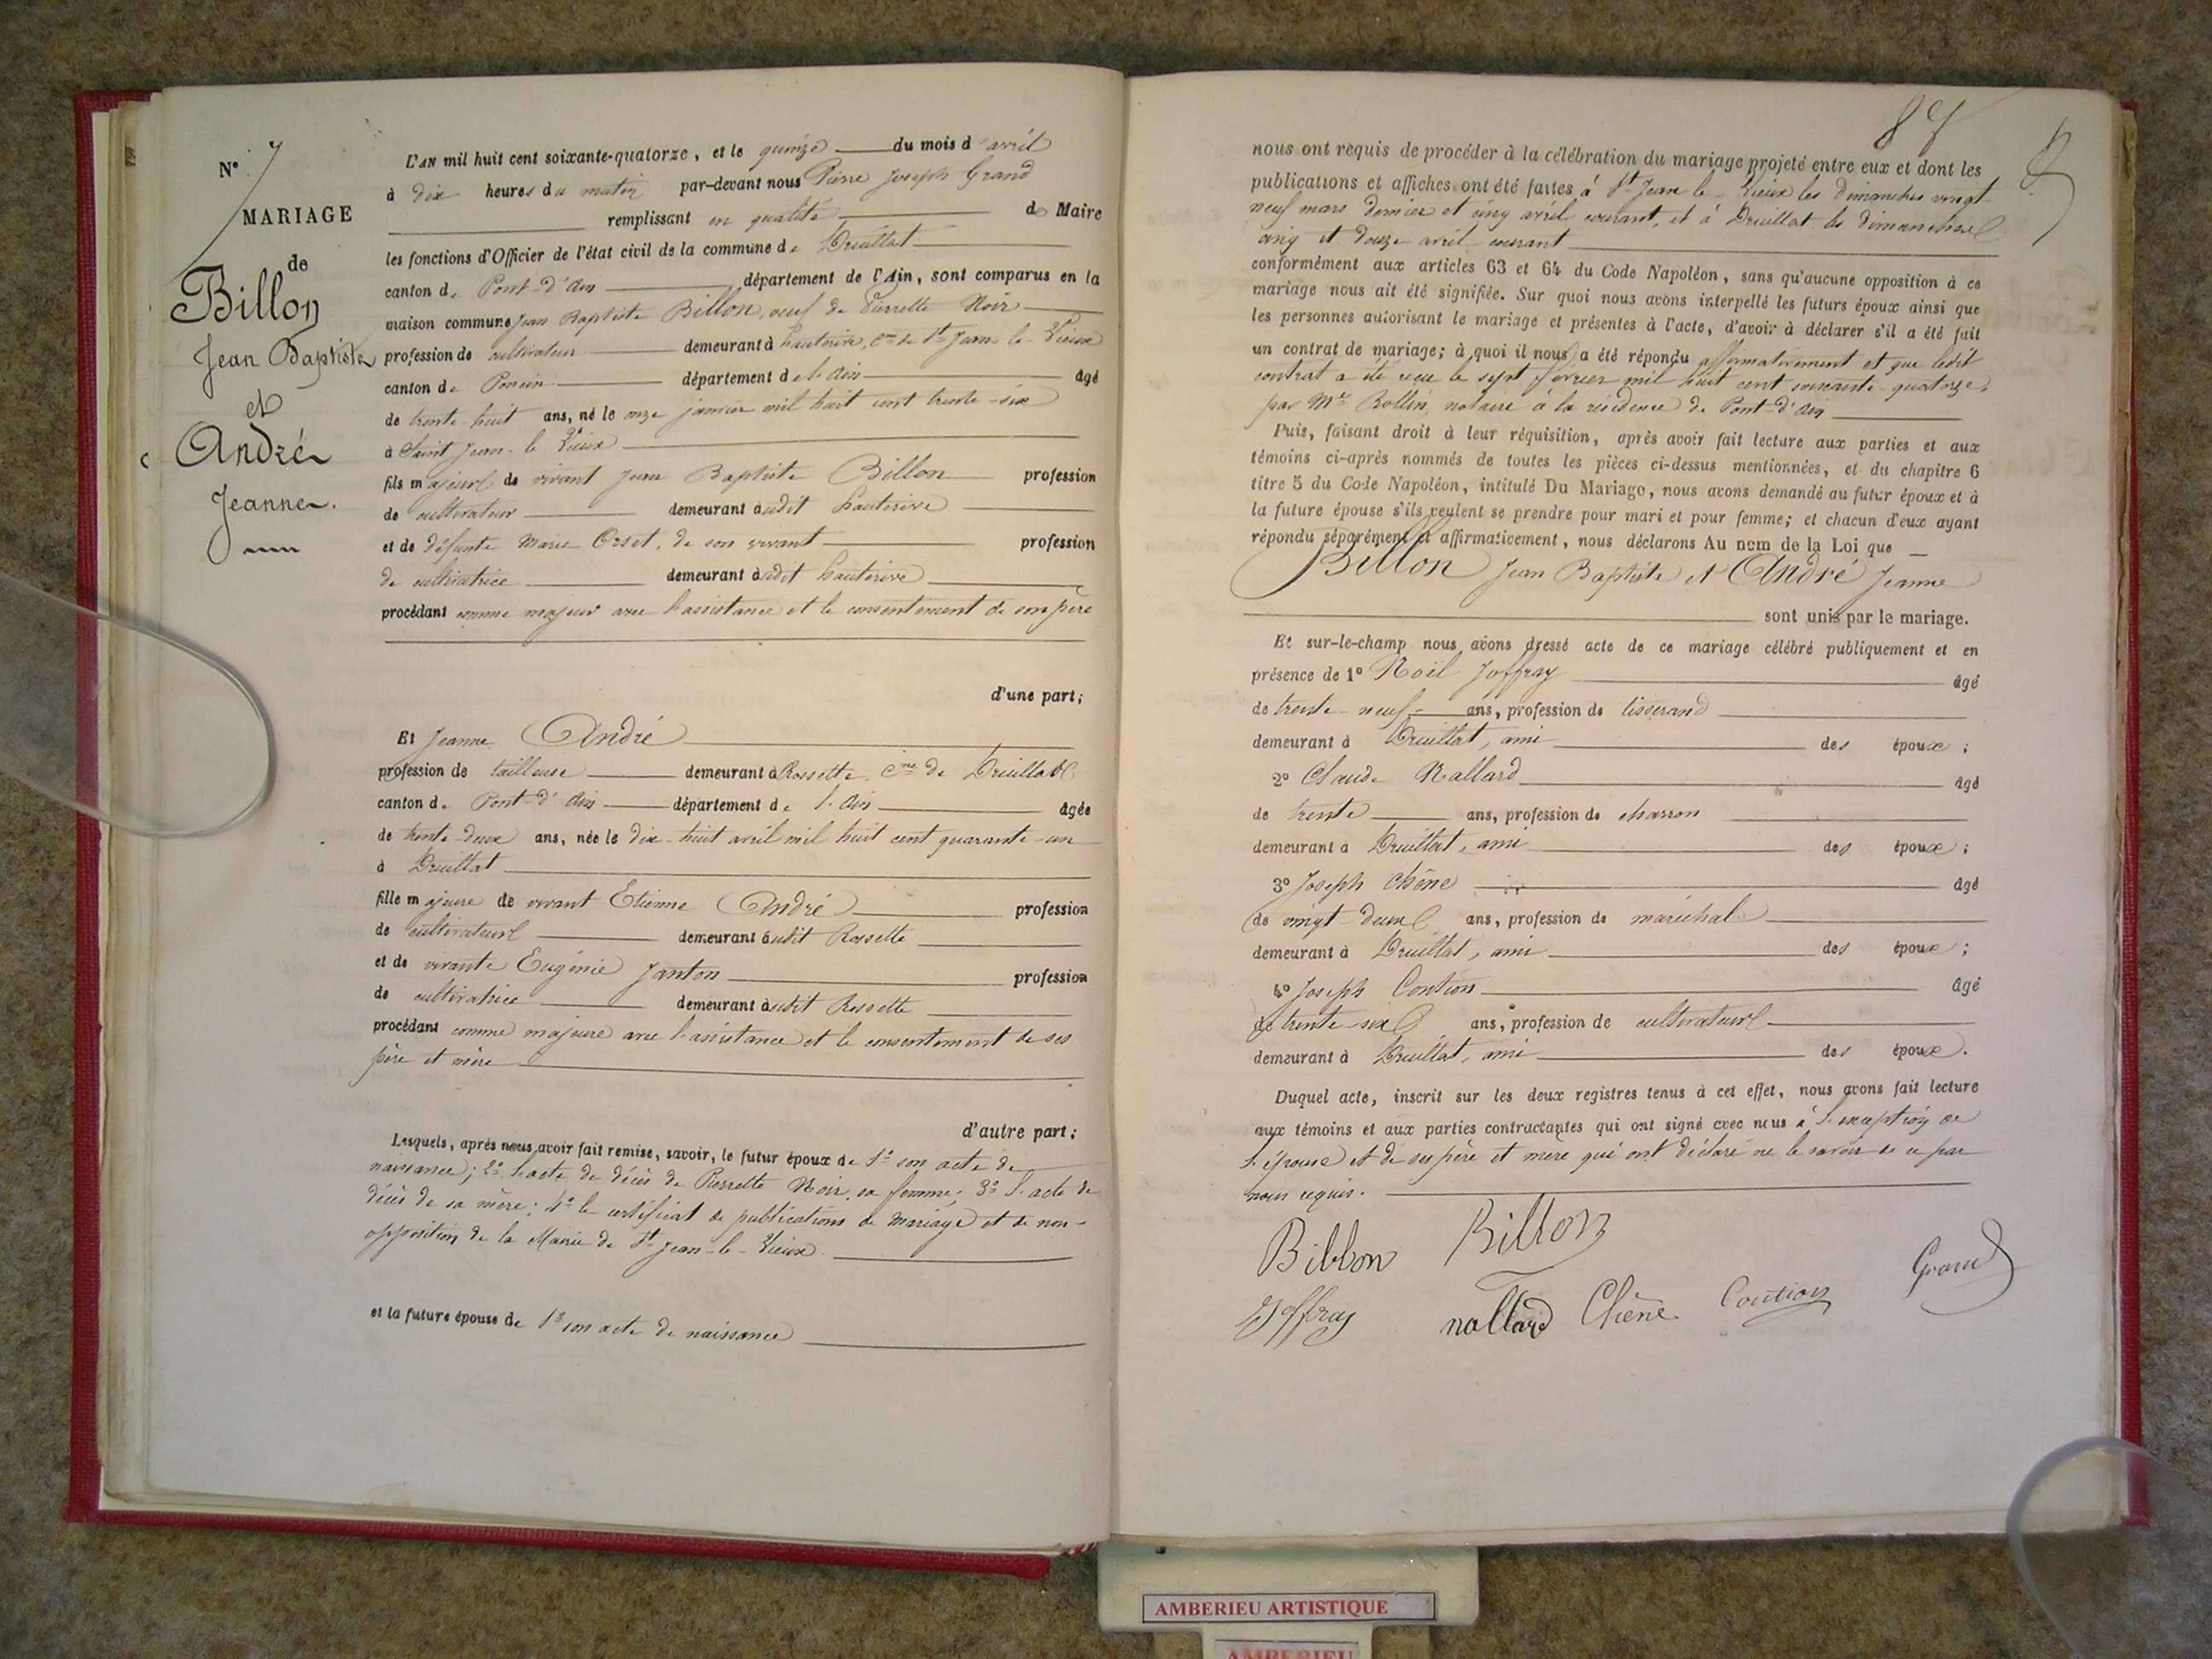 N° 7
MARIAGE
de
Billon
Jean Baptiste
et
André
Jeanne.
L'AN mil huit cent soixante-quatorze, et le quinze du mois d'avril
à dix heures du matin par-devant nous Pierre Joseph Grand
remplissant en qualité de Maire
les fonctions d'Officier de l'état civil de la commune de Druillat
canton de Pont-d'Ain département de l'Ain, sont comparus en la
maison commune Jean Baptiste Billon, veuf de Pierrette Noir
profession de cultivateur demeurant à hauterive, Cne de St Jean le Vieux
canton de Poncin département de l'Ain âgé
de trente-huit ans, né le onze janvier mil huit cent trente-six
à Saint Jean-le Vieux
fils majeur de vivant Jean Baptiste Billon profession
de cultivateur demeurant audit hauterive
et de défunte Marie Orset, de son vivant profession
de cultivatrice demeurant audit hauterive
procédant comme majeur avec l'assistance et le consentement de son père
d'une part;
Et Jeanne André
profession de tailleuse demeurant à Rossette, Cne de Druillat
canton de Pont-d'Ain département de l'Ain âgée
de trente-deux ans, née le dix-huit avril mil huit cent quarante-un
à Druillat
fille majeure de vivant Etienne André profession
de cultivateur demeurant audit Rossette
et de vivante Eugénie Janton profession
de cultivatrice demeurant audit Rossette
procédant comme majeure avec l'assistance et le consentement de ses
père et mère
d'autre part;
Lesquels, après nous avoir fait remise, savoir, le futur époux de 1° son acte de
naissance; 2° l'acte de décès de Pierrette Noir, sa femme; 3° l'acte de
décès de sa mère; 4° le certificat de publications de mariage et de non-
opposition de la Mairie de St Jean-le-Vieux
et la future épouse de 1° son acte de naissance
87
nous ont requis de procéder à la célébration du mariage projeté entre eux et dont les
publications et affiches ont été faites à St Jean le-Vieux les dimanches vingt
neuf mars dernier et cinq avril courant, et à Druillat les dimanches
cinq et douze avril courant
conformément aux articles 63 et 64 du Code Napoléon, sans qu'aucune opposition à ce
mariage nous ait été signifiée. Sur quoi nous avons interpellé les futurs époux ainsi que
les personnes autorisant le mariage et présentes à l'acte, d'avoir à déclarer s'il a été fait
un contrat de mariage; à quoi il nous a été répondu affirmativement et que ledit
contrat a été reçu le sept février mil huit cent soixante-quatorze,
par Me Rollin, notaire à la résidence de Pont-d'Ain
Puis, faisant droit à leur réquisition, après avoir fait lecture aux parties et aux
témoins ci-après nommés de toutes les pièces ci-dessus mentionnées, et du chapitre 6
titre 5 du Code Napoléon, intitulé Du Mariage, nous avons demandé au futur époux et à
la future épouse s'ils veulent se prendre pour mari et pour femme; et chacun d'eux ayant
répondu séparément et affirmativement, nous déclarons Au nom de la Loi que
Billon Jean Baptiste et André Jeanne
sont unis par le mariage.
Et sur-le-champ nous avons dressé acte de ce mariage célébré publiquement et en
présence de 1° Noël Joffray âgé
de trente-neuf ans, profession de tisserand
demeurant à Druillat, ami des époux;
2° Claude Nallard âgé
de trente ans, profession de charron
demeurant à Druillat, ami des époux;
3° Joseph Chêne âgé
de vingt-deux ans, profession de maréchal
demeurant à Druillat, ami des époux;
4° Joseph Contion âgé
de trente-six ans, profession de cultivateur
demeurant à Druillat, ami des époux.
Duquel acte, inscrit sur les deux registres tenus à cet effet, nous avons fait lecture
aux témoins et aux parties contractantes qui ont signé avec nous à l'exception de
l'épouse et de ses père et mère qui ont déclaré ne le savoir de ce par
nous requis.
Billon Billon
Joffray nallard Chêne Contion Grand
AMBERIEU ARTISTIQUE
AMBERIEU